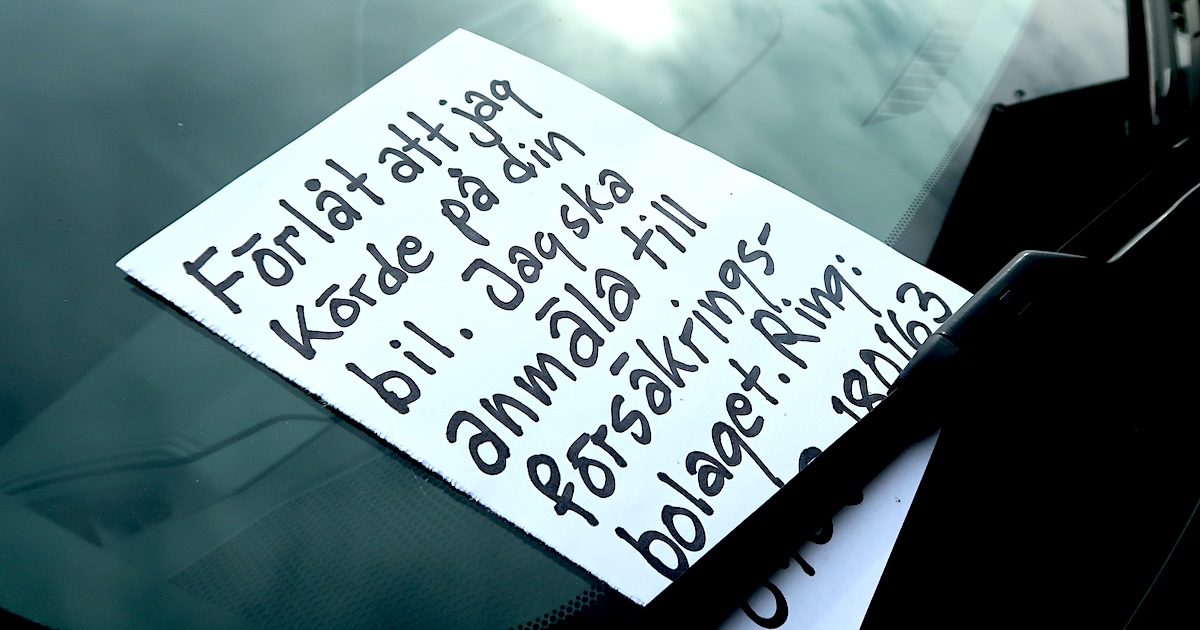 Förlåt att jag
körde på din
bil. Jag ska
anmäla till
försäkrings-
bolaget. Ring:
180163